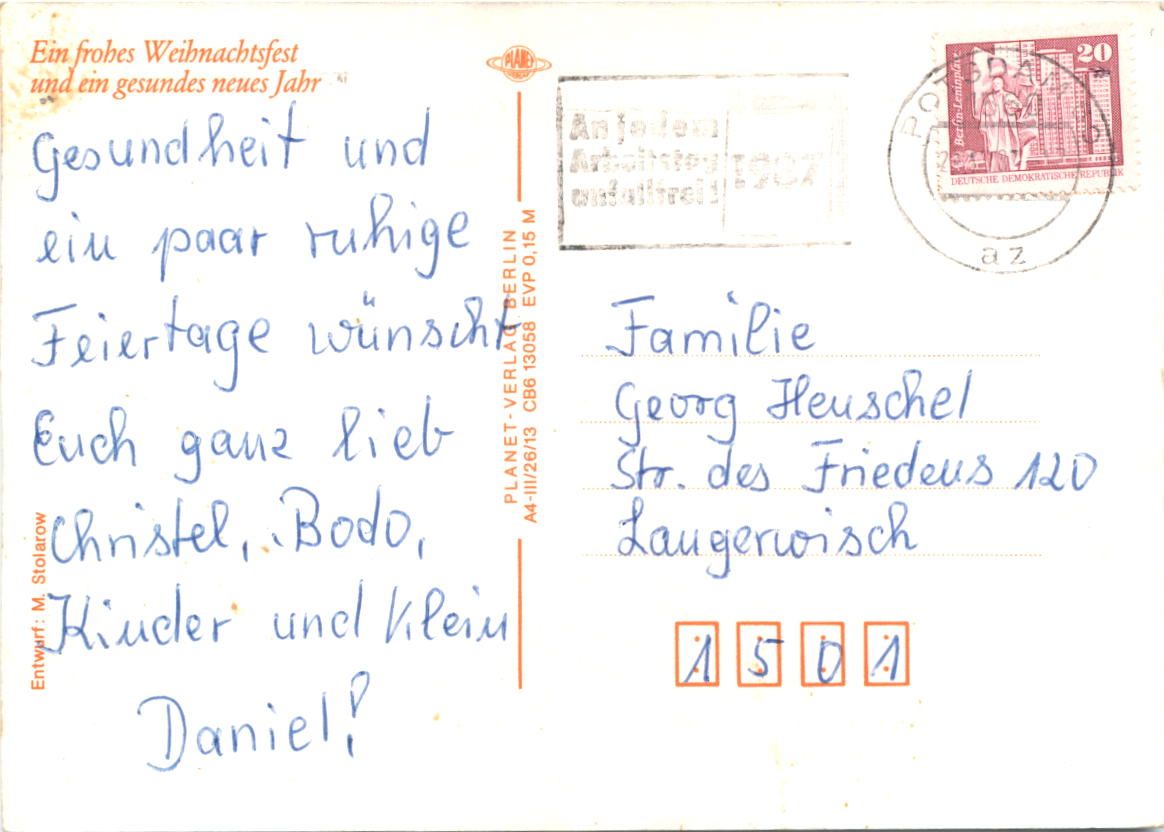 Ein frohes Weihnachtsfest
und ein gesundes neues Jahr
Gesundheit und
ein paar ruhige
Feiertage wünscht
Euch ganz lieb
Christel, Bodo,
Kinder und Klein
Daniel!
Entwurf: M. Stolarow
PLANET
VERLAG
PLANET-VERLAG BERLIN
A4-III/26/13 CB6 13058 EVP 0,15 M
An jedem
Arbeitstag
unfallfrei!
1987
POTSDAM
az
20
Berlin-Leninplatz
DEUTSCHE DEMOKRATISCHE REPUBLIK
Familie
Georg Henschel
Str. des Friedens 120
Langerwisch
1501